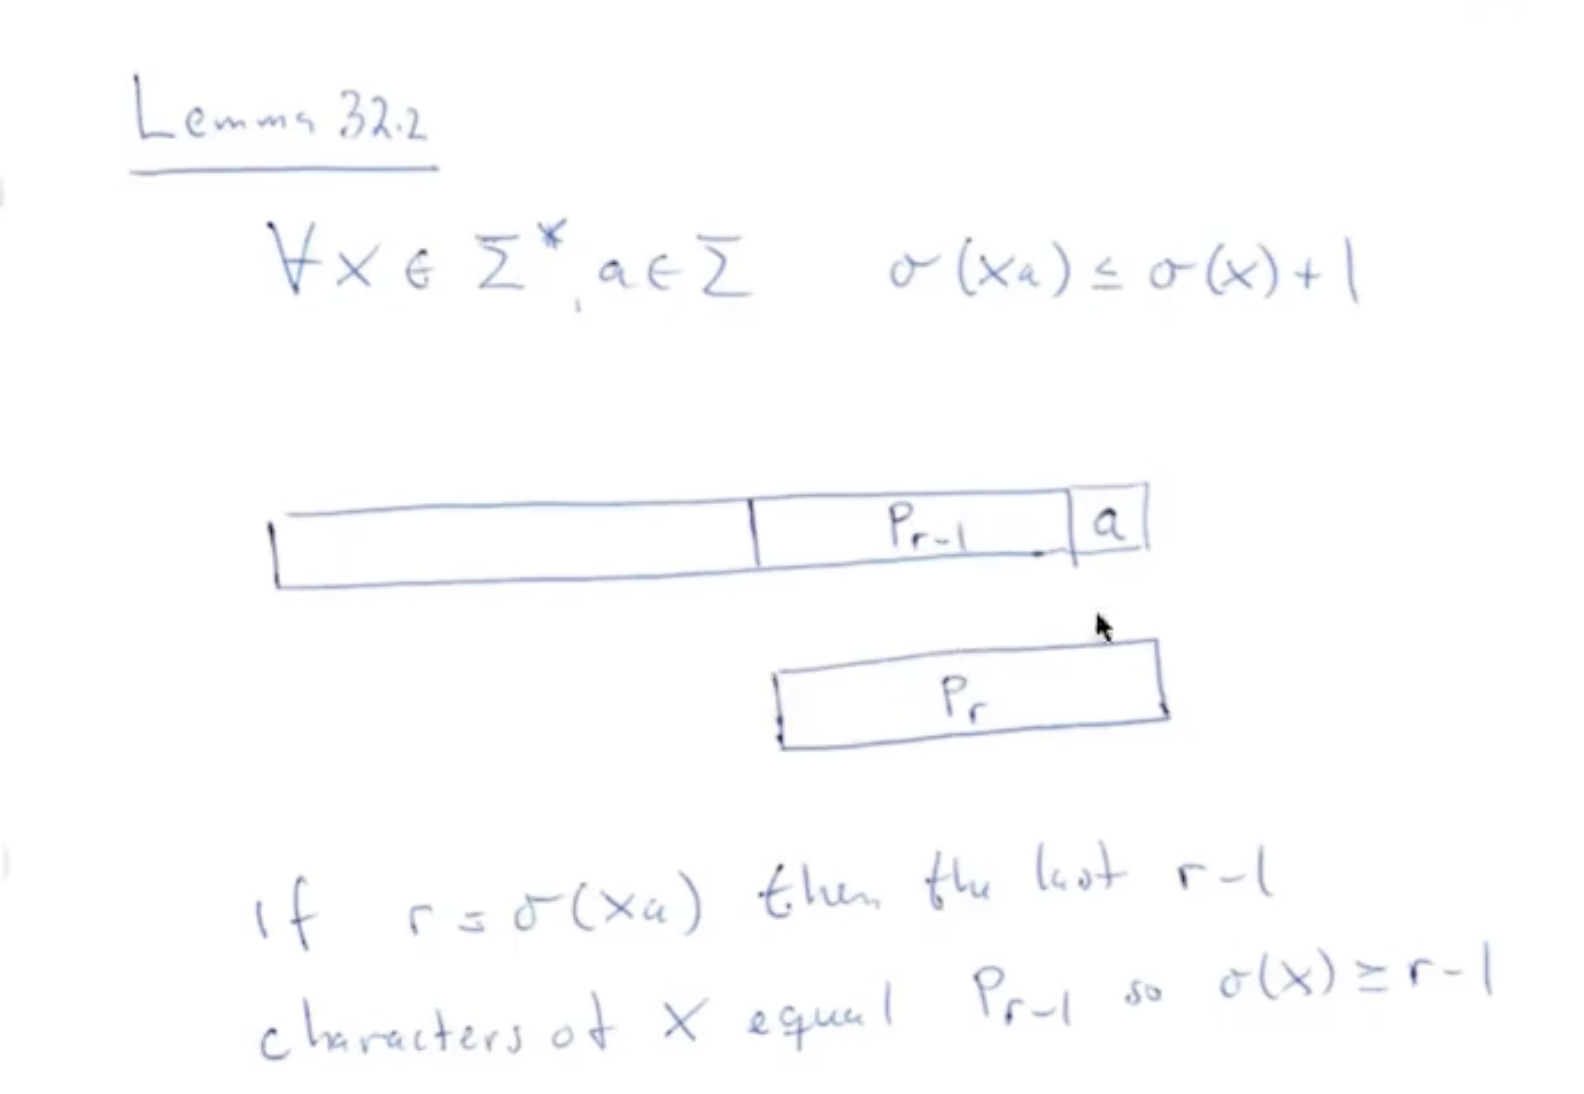 Lemma 32.2
∀x ∈ Σ*, a ∈ Σ σ(xa) ≤ σ(x) + 1
Pr-1 a
Pr
If r = σ(xa) then the last r-1
characters of x equal Pr-1 so σ(x) ≥ r-1